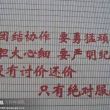 团结协作 要勇猛顽
胆大心细 要严明纪
没有讨价还价
只有绝对服